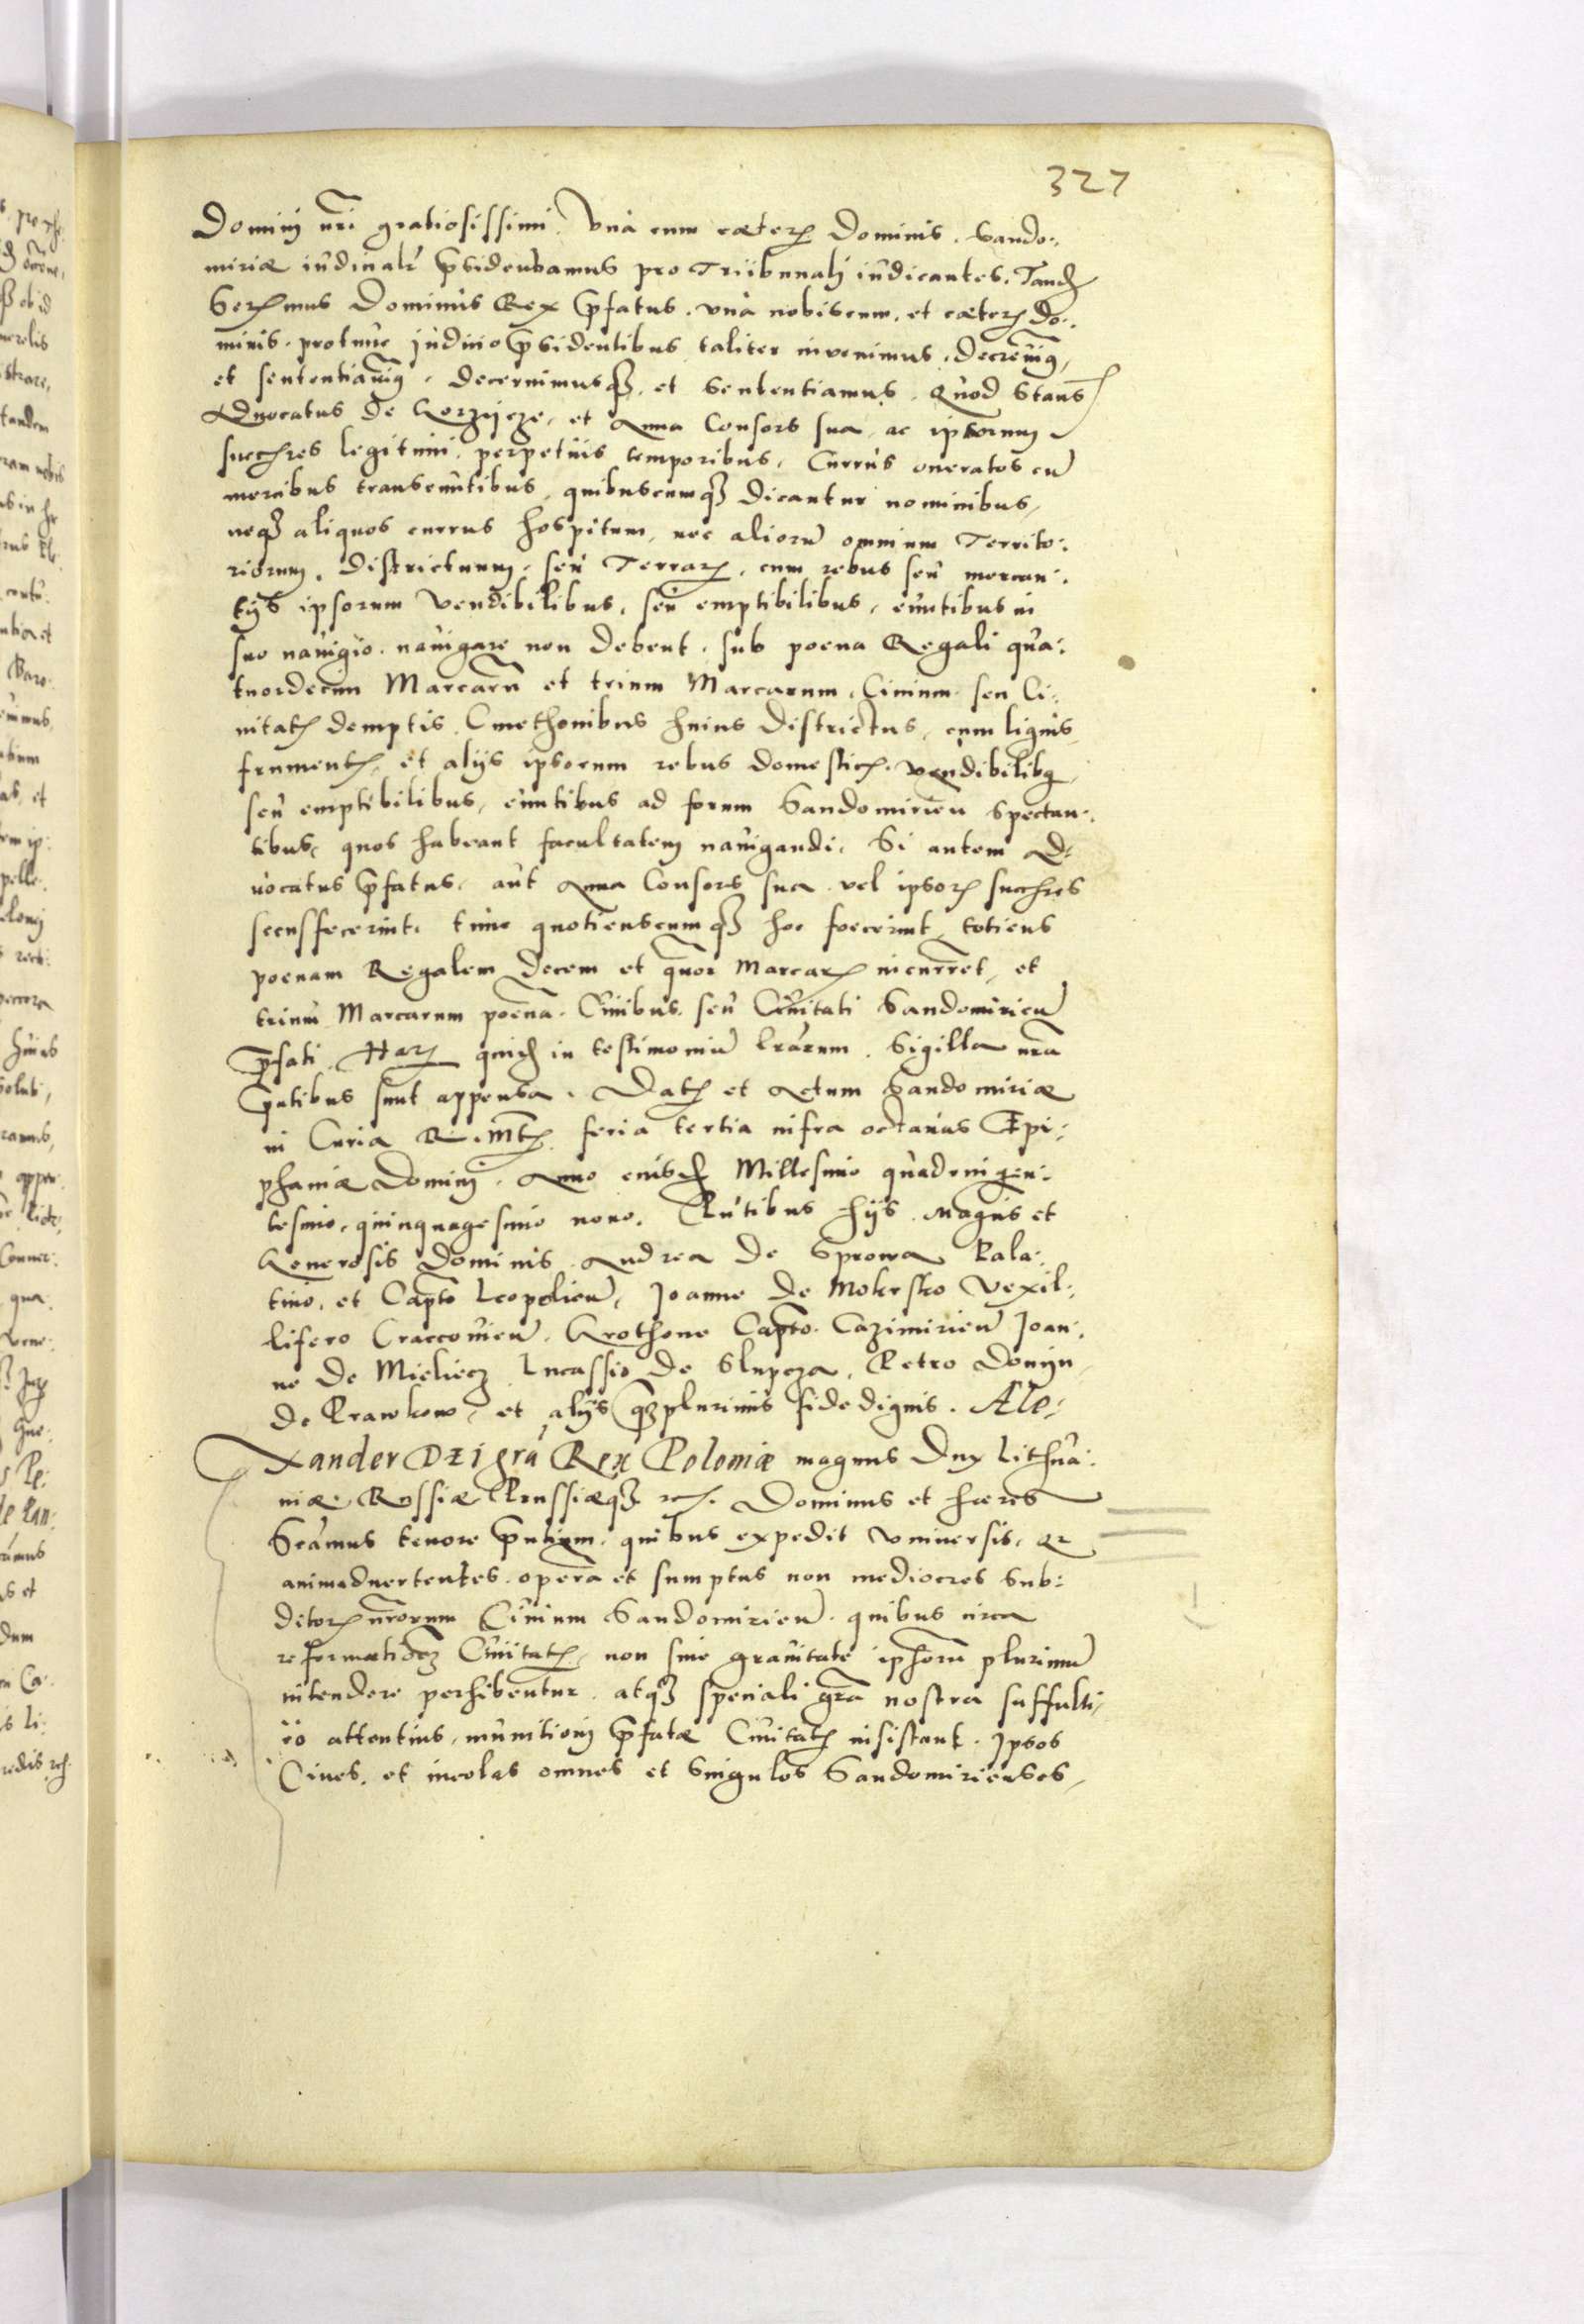 327
Dominj nri gratiosissimi. Vna cum cæterȝ Dominis. Sando:
miriæ iudicialr p̄sidebamus pro Tribunalj iudicantes. Tandē
Serȝmus Dominus Rex p̄fatus. vna nobiscum. et cæterȝ do:
minis. protunc judicio p̄sidentibus taliter invenimus. decreuimȝ,
et sententiauimȝ. decernimusqȝ. et Sententiamus. Quod Stansȝ
Aduocatus de Gorzijcze, et Anna Consors sua, ac ipsorum
succȝres legitimi. perpetuis temporibus. Currus oneratos cū
mercibus transeuntibus, quibuscumqȝ dicantur nominibus,
neqȝ aliquos currus hospitum, nec aliorū omnium Territo:
riorum. Districtuum. seu Terrarȝ. cum rebus seu mercan:
tijs ipsorum Vendibilibus. seu emptibilibus, euntibus in
suo nauigio. nauigare non debent. sub poena Regali qua:
tuordecim Marcarū et trium Marcarum. Ciuium. seu Ci:
uitatȝ demptis. Cmethonibus huius districtus, cum lignis,
frumentȝ, et alijs ipsorum rebus domesticȝ. vendibilibȝ,
seu emptibilibus, euntibus ad forum Sandomirien̄ spectan:
tibus, quos habeant facultatem nauigandi. Si autem Ad:
uocatus p̄fatus, aut Anna Consors sua. vel ipsorȝ succȝres
secusfecerint. tunc quotienscumqȝ hoc foecerint, totiens
poenam Regalem decem et quor Marcarȝ incurret, et
trium Marcarum poenā. Ciuibus. seu Ciuitati Sandomirien̄
p̄fati. Harȝ quidē in testimoniū lrarum. Sigilla nrā
p̄ntibus sunt appensa. Datȝ et Actum Sandomiriæ
in Curia R. Mtȝ. feria tertia infra octauas Epi:
phaniæ Dominj. Anno eiusdē Millesimo quadringen:
tesimo, quinquagesimo nono. Pntibus hijs. Magcis et
Generosis Dominis Andrea de Sprowa Pala:
tino, et Capto Leopolien̄, Joanne de Mokrsko Vexil:
lifero Craccouien̄. Grothone Capto. Cazimirien̄ Joan:
ne de Mieliecz Lucassio de Slupcza, Petro Donijn
de Prawkow, et alijs qȝplurimis fidedignis. Ale:
xander Dei gra Rex Poloniæ magnus Dux Lithua:
niæ. Russiæ Prussiæqȝ rcȝ. Dominus et hæres
Sca̅mus tenore p̄ntium. quibus expedit vniuersis, qr
animaduertentes. operā et sumptus non mediocres Sub:
ditorȝ nrorum Ciuium Sandomirien̄. quibus circa
reformationeȝ Ciuitatȝ, non sine grauitate ipsorū plurimū
intendere perhibentur. atqȝ speciali grā nostra suffulti,
eo attentius. munitionj p̄fatæ Ciuitatȝ insistant. Ipsos
Ciues. et incolas omnes et Singulos Sandomirienses,